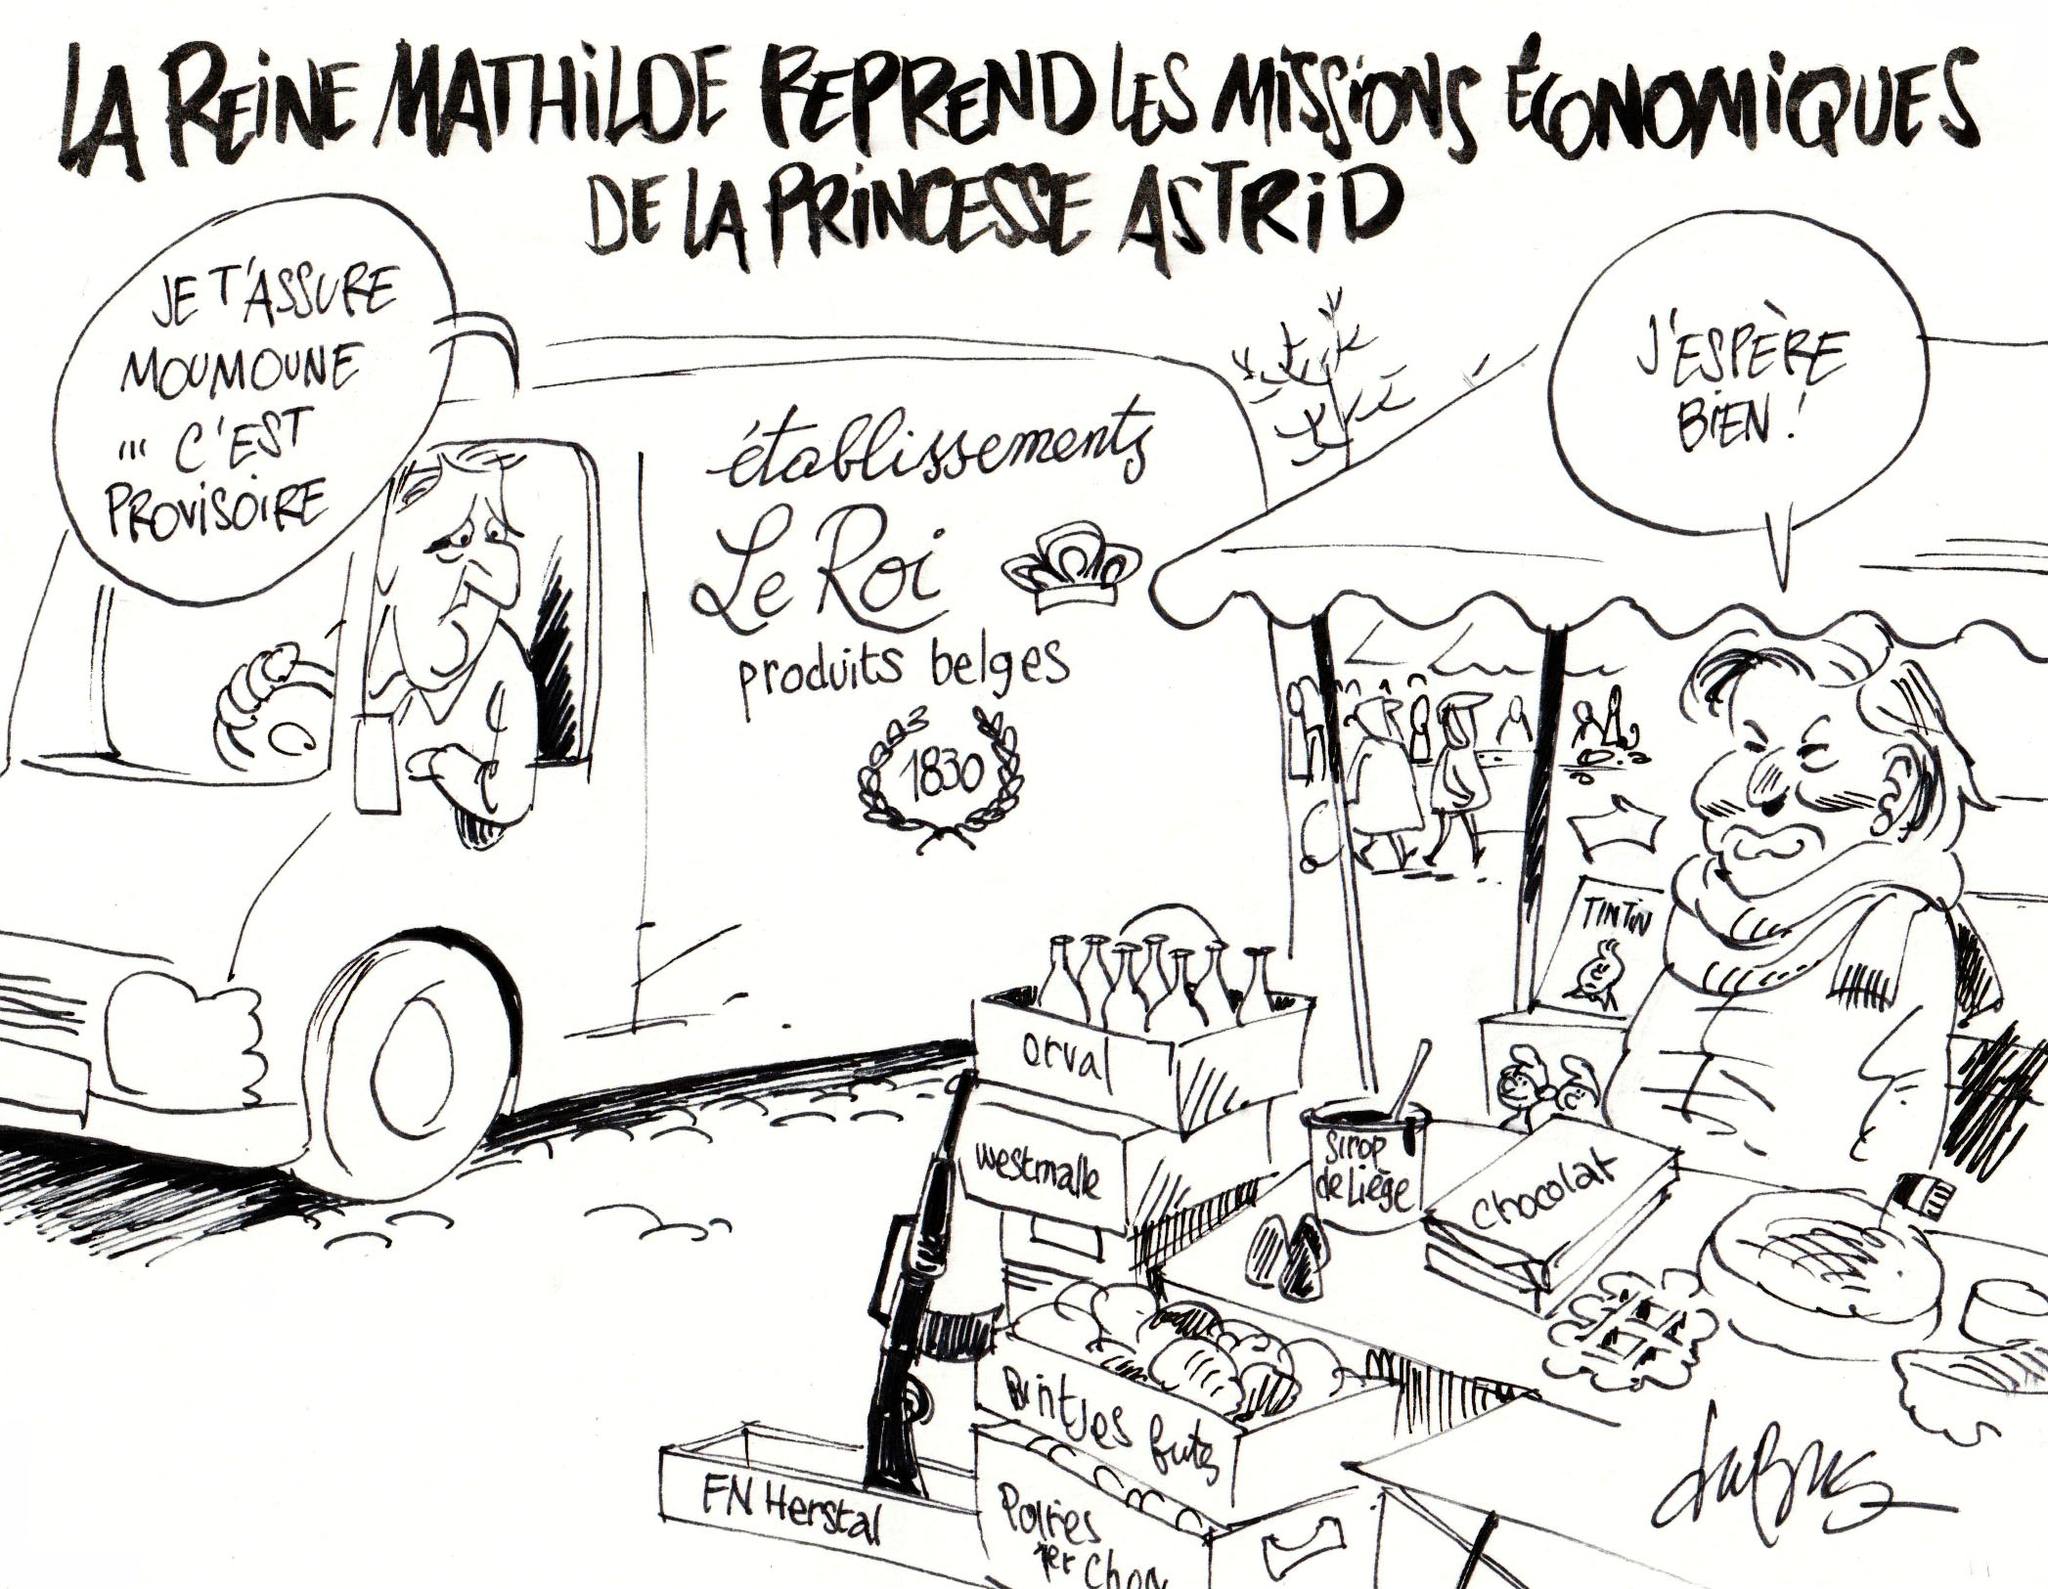 LA REINE MATHILDE REPREND LES MISSIONS ÉCONOMIQUES
DE LA PRINCESSE ASTRID
JE T'ASSURE
MOUMOUNE
... C'EST
PROVISOIRE
J'ESPÈRE
BIEN !
établissements
Le Roi
produits belges
1830
TINTIN
orval
westmalle
Sirop
de Liège
chocolat
Bintjes frites
FN Herstal
Poires
1er choix
duBus